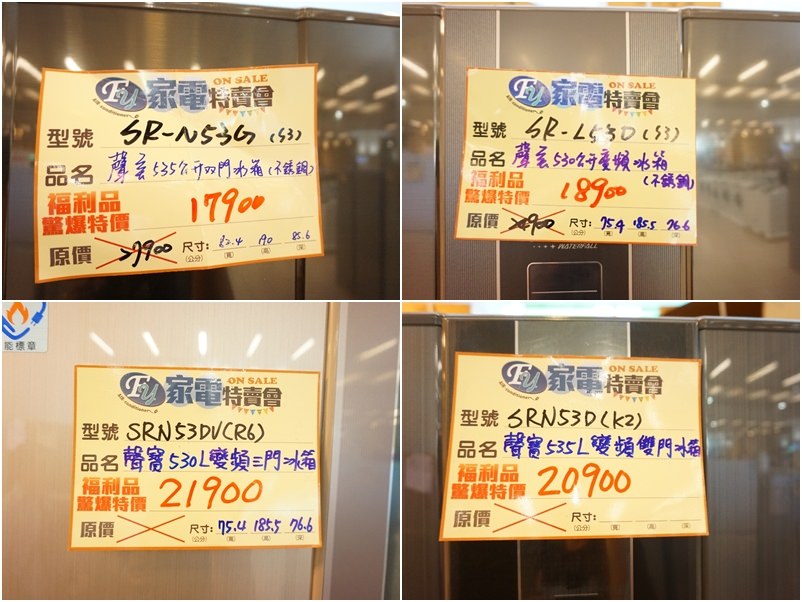 Fu 家電特賣會 ON SALE
型號 SR-N53G (S3)
品名 聲宝 535公升雙門冰箱 (不銹鋼)
福利品
驚爆特價 17900
原價 27900 尺寸: 82.4 190 85.6
(公分) (寬) (高) (深)
Fu 家電特賣會 ON SALE
型號 SR-L53D (S3)
品名 聲宝 530公升變頻冰箱
(不銹鋼)
福利品
驚爆特價 18900
原價 24900 尺寸: 75.4 185.5 76.6
(公分) (寬) (高) (深)
WATERFALL
能標章
Fu 家電特賣會 ON SALE
型號 SRN53DV(R6)
品名 聲寶 530L 變頻三門冰箱
福利品
驚爆特價 21900
原價 尺寸: 75.4 185.5 76.6
(公分) (寬) (高) (深)
Fu 家電特賣會 ON SALE
型號 SRN53D(K2)
品名 聲寶 535L 變頻雙門冰箱
福利品
驚爆特價 20900
原價 尺寸:
(公分) (寬) (高) (深)